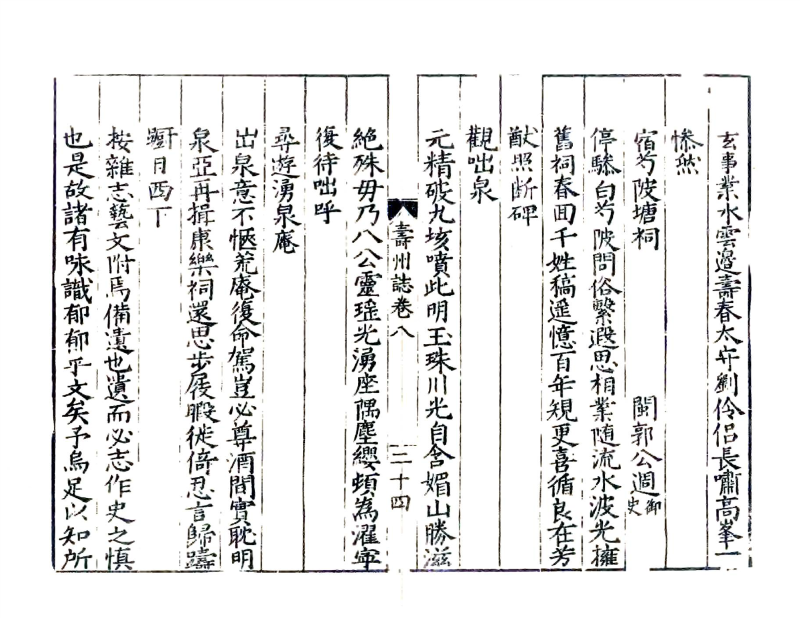 玄事業水雲邉壽春太守劉伶侣長嘯高峯一
惨然
宿芍陂塘祠 閩郭公週御史
停驂白芍陂問俗繫遐思相業随流水波光擁
舊祠春田千姓稿遥憶百年規更喜循良在芳
猷照断碑
觀咄泉
元精破九垓噴此明玉珠川光自含媚山勝滋
絶殊毋乃八公靈瑶光湧座隅塵纓頻為濯寧
復待咄呼
尋遊湧泉庵
出泉意不愜荒庵復命駕豈必尊酒間實耽明
泉亞再揖康樂祠還思步屐暇徙倚忍言歸躊
躕日西下
按雜志藝文附焉備遺也遺而必志作史之慎
也是故諸有味識郁郁乎文矣予烏足以知所
壽州誌卷八
三十四